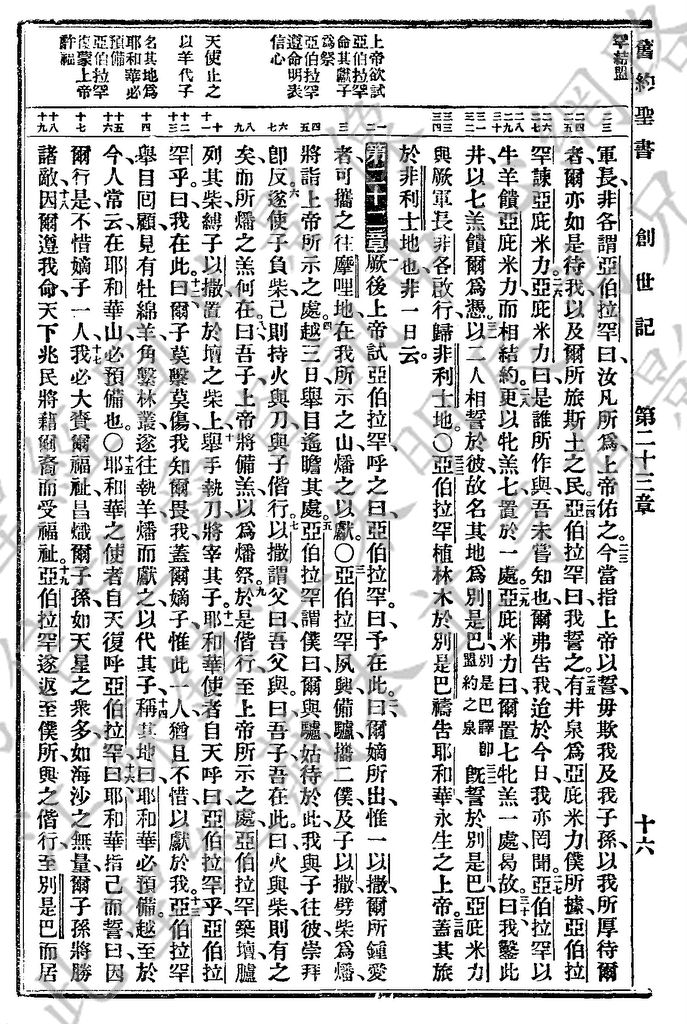 舊約聖書 創世記 第二十三章 十六
罕結盟
上帝欲試
亞伯拉罕
命其獻子
為祭
亞伯拉罕
遵命明表
信心
天使止之
以羊代子
名其地為
耶和華必
預備
亞伯拉罕
復蒙上帝
許福
軍長非各謂亞伯拉罕曰汝凡所為上帝佑之今當指上帝以誓毋欺我及我子孫以我所厚待爾
者爾亦如是待我以及爾所旅斯土之民亞伯拉罕曰我誓之有井泉為亞庇米力僕所據亞伯拉
罕諫亞庇米力亞庇米力曰是誰所作與吾未嘗知也爾弗告我迨於今日我亦罔聞亞伯拉罕以
牛羊饋亞庇米力而相結約更以牝羔七置於一處亞庇米力曰爾置七牝羔一處曷故曰我鑿此
井以七羔饋爾為憑以二人相誓於彼故名其地為別是巴別是巴譯即盟約之泉既誓於別是巴亞庇米力
與厥軍長非各啟行歸非利士地○亞伯拉罕植林木於別是巴禱告耶和華永生之上帝蓋其旅
於非利士地也非一日云
第二十二章厥後上帝試亞伯拉罕呼之曰亞伯拉罕曰予在此曰爾嫡所出惟一以撒爾所鍾愛
者可攜之往摩哩地在我所示之山燔之以獻○亞伯拉罕夙興備驢攜二僕及子以撒劈柴為燔
將詣上帝所示之處越三日舉目遙瞻其處亞伯拉罕謂僕曰爾與驢姑待於此我與子往彼崇拜
卽反遂使子負柴己則持火與刀與子偕行以撒謂父曰吾父與曰吾子吾在此曰火與柴則有之
矣而所燔之羔何在曰吾子上帝將備羔以為燔祭於是偕行至上帝所示之處亞伯拉罕築壇臚
列其柴縛子以撒置於壇之柴上舉手執刀將宰其子耶和華使者自天呼曰亞伯拉罕乎亞伯拉
罕乎曰我在此曰爾子莫擊莫傷我知爾畏我蓋爾嫡子惟此一人猶且不惜以獻於我亞伯拉罕
舉目回顧見有牡綿羊角繫林叢遂往執羊燔而獻之以代其子稱其地曰耶和華必預備越至於
今人常云在耶和華山必預備也○耶和華之使者自天復呼亞伯拉罕曰耶和華指己而誓曰因
爾行是不惜嫡子一人我必大賚爾福祉昌熾爾子孫如天星之衆多如海沙之無量爾子孫將勝
諸敵因爾遵我命天下兆民將藉爾裔而受福祉亞伯拉罕遂返至僕所與之偕行至別是巴而居